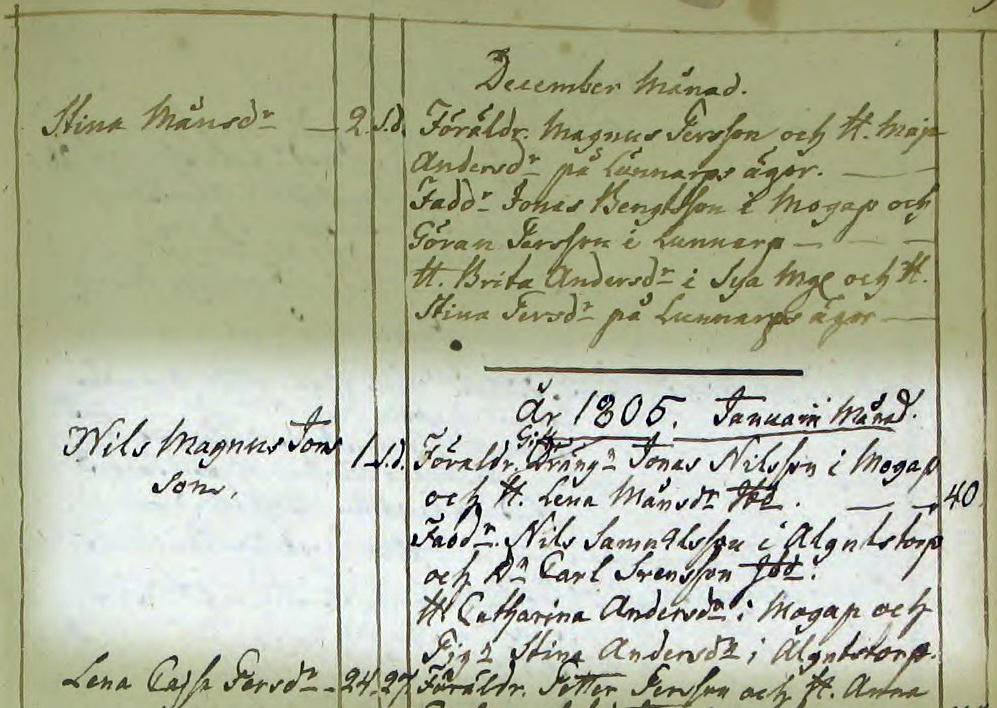 December Månad.
Stina Månsdr — 2. s.d. Föräldr. Magnus Persson och H. Maja
Andersdr på Lunnarps ägor. —
Fadd.r Jonas Bengtsson i Mogap och
Göran Persson i Lunnarp — — —
H. Brita Andersdr i Sya och H.
Stina Persdr på Lunnarps ägor —
År 1805. Januarii Månad.
Nils Magnus Jons 1 s.d. Föräldr. Drängn Jonas Nilsson i Mogap
son, och H. Lena Månsdr ibd. — — 40.
Faddr. Nils Samuelsson i Älgutstorp
och Dn Carl Svensson ibd.
H Catharina Andersdr i Mogap och
Pign Stina Andersdr i Älgutstorp.
Lena Cajsa Persdr - 24. 27 Föräldr. Petter Persson och H. Anna